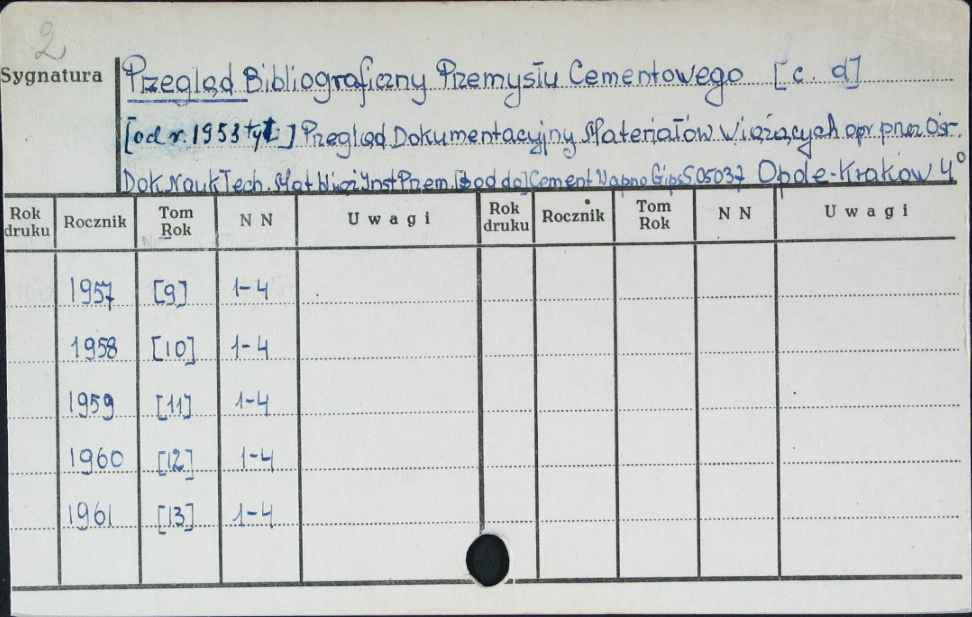 2
Sygnatura
Przegląd Bibliograficzny Przemysłu Cementowego [c. d]
[od r. 1953 tyt.] Przegląd Dokumentacyjny Materiałów Wiążących opr. przez Ośr.
Dok. Nauk Tech. Mat. Wiąż Inst Przem. [dod do] Cement Wapno Gips S 05037 Opole-Kraków 4°
Rok druku Rocznik Tom Rok N N Uwagi Rok druku Rocznik Tom Rok N N Uwagi
1957 [9] 1-4
1958 [10] 1-4
1959 [11] 1-4
1960 [12] 1-4
1961 [13] 1-4